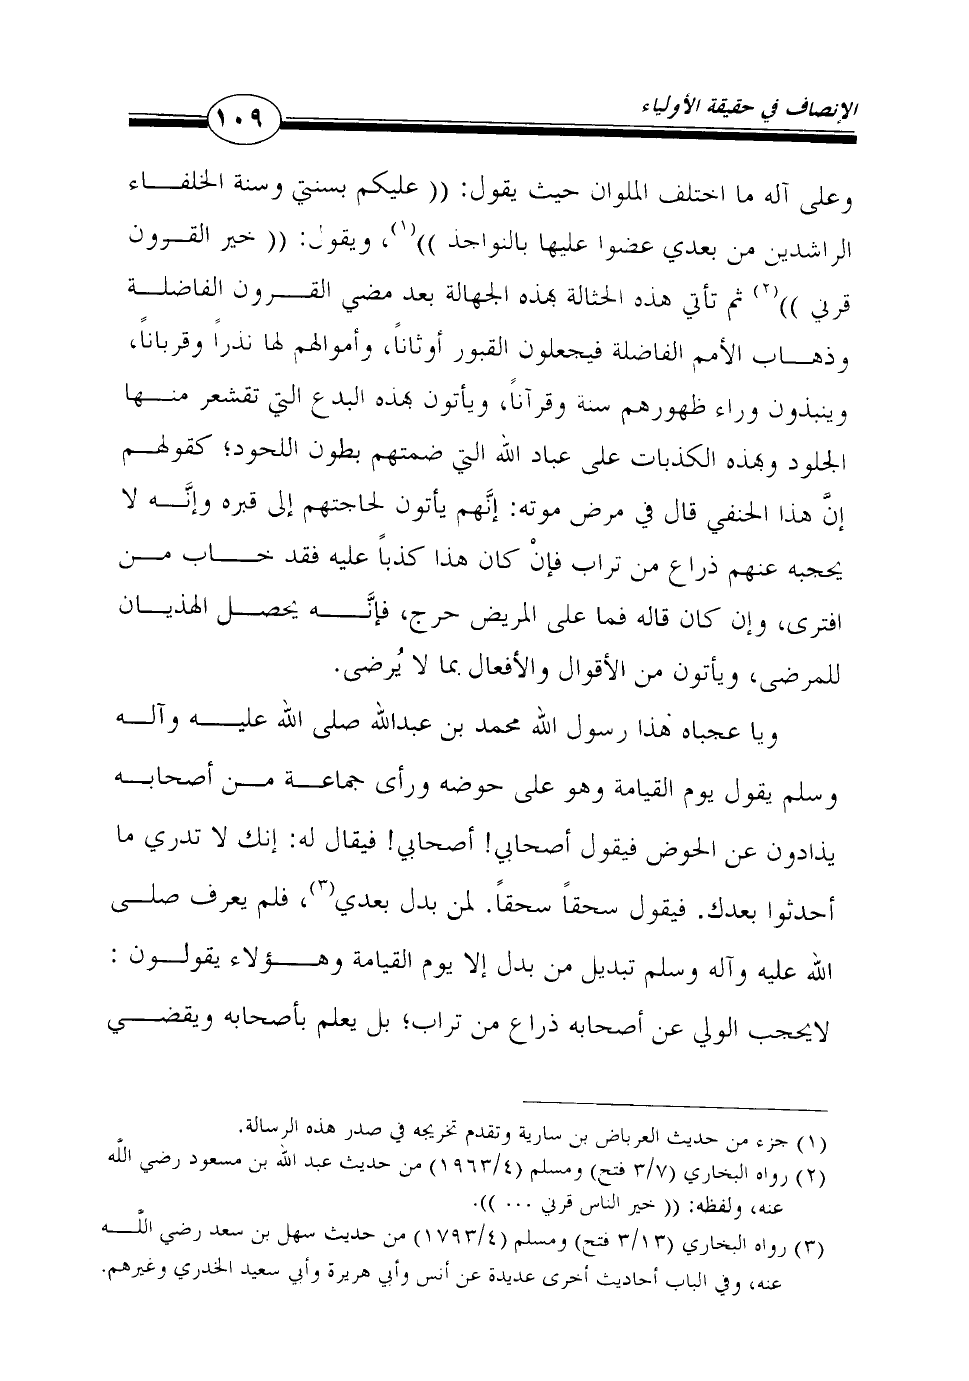 الإنصاف في حقيقة الأولياء
١٠٩
وعلى آله ما اختلف الملوان حيث يقول: (( عليكم بسنتي وسنة الخلفاء
الراشدين من بعدي عضوا عليها بالنواجذ ))(١)، ويقول: (( خير القرون
قرني ))(٢) ثم تأتي هذه الحثالة بهذه الجهالة بعد مضي القرون الفاضلة
وذهاب الأمم الفاضلة فيجعلون القبور أوثاناً، وأموالهم لها نذراً وقرباناً،
وينبذون وراء ظهورهم سنة وقرآناً، ويأتون بهذه البدع التي تقشعر منها
الجلود وبهذه الكذبات على عباد الله التي ضمتهم بطون اللحود؛ كقولهم
إنَّ هذا الحنفي قال في مرض موته: إنَّهم يأتون لحاجتهم إلى قبره وإنَّه لا
يحجبه عنهم ذراع من تراب فإنْ كان هذا كذباً عليه فقد خاب من
افترى، وإن كان قاله فما على المريض حرج، فإنَّه يحصل الهذيان
للمرضى، ويأتون من الأقوال والأفعال بما لا يُرضى.
ويا عجباه هذا رسول الله محمد بن عبدالله صلى الله عليه وآله
وسلم يقول يوم القيامة وهو على حوضه ورأى جماعة من أصحابه
يذادون عن الحوض فيقول أصحابي! أصحابي! فيقال له: إنك لا تدري ما
أحدثوا بعدك. فيقول سحقاً سحقاً. لمن بدل بعدي(٣)، فلم يعرف صلى
الله عليه وآله وسلم تبديل من بدل إلا يوم القيامة وهؤلاء يقولون :
لايحجب الولي عن أصحابه ذراع من تراب؛ بل يعلم بأصحابه ويقضي
(١) جزء من حديث العرباض بن سارية وتقدم تخريجه في صدر هذه الرسالة.
(٢) رواه البخاري (٣/٧ فتح) ومسلم (١٩٦٣/٤) من حديث عبد الله بن مسعود رضي الله
عنه، ولفظه: (( خير الناس قرني ... )).
(٣) رواه البخاري (٣/١٣ فتح) ومسلم (١٧٩٣/٤) من حديث سهل بن سعد رضي الله
عنه، وفي الباب أحاديث أخرى عديدة عن أنس وأبي هريرة وأبي سعيد الخدري وغيرهم.